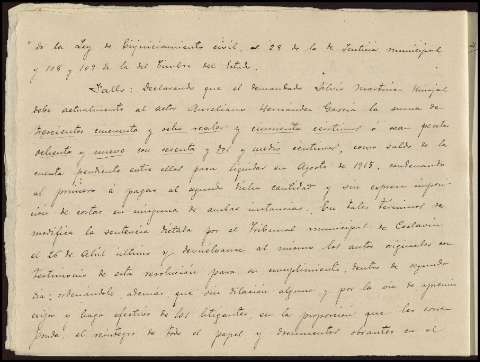 de la Ley de Enjuiciamiento civil, el 28 de la de Justicia municipal
y 108 y 109 de la del Timbre del Estado.
Fallo: Declarando que el demandado Silvio Martínez
debe actualmente al actor Aureliano Hernández García la suma de
trescientos cincuenta y ocho reales y cincuenta centimos ó sean pesetas
ochenta y nueve con sesenta y dos y medio centimos, como saldo de la
cuenta pendiente entre ellos para liquidar en Agosto de 1915, condenando
al primero á pagar al segundo dicha cantidad y sin expresa imposi-
ción de costas en ninguna de ambas instancias. En tales términos se
modifica la sentencia dictada por el Tribunal municipal de
el 26 de Abril último y devuelvanse al mismo los autos originales con
testimonio de esta resolución para su cumplimiento, dentro de segundo
dia; ordenándole, además que sin dilación alguna y por la via de apremio
exija y haga efectivo de los litigantes, en la proporción que les corres
ponda el reintegro de todo el papel y documentos obrantes en el